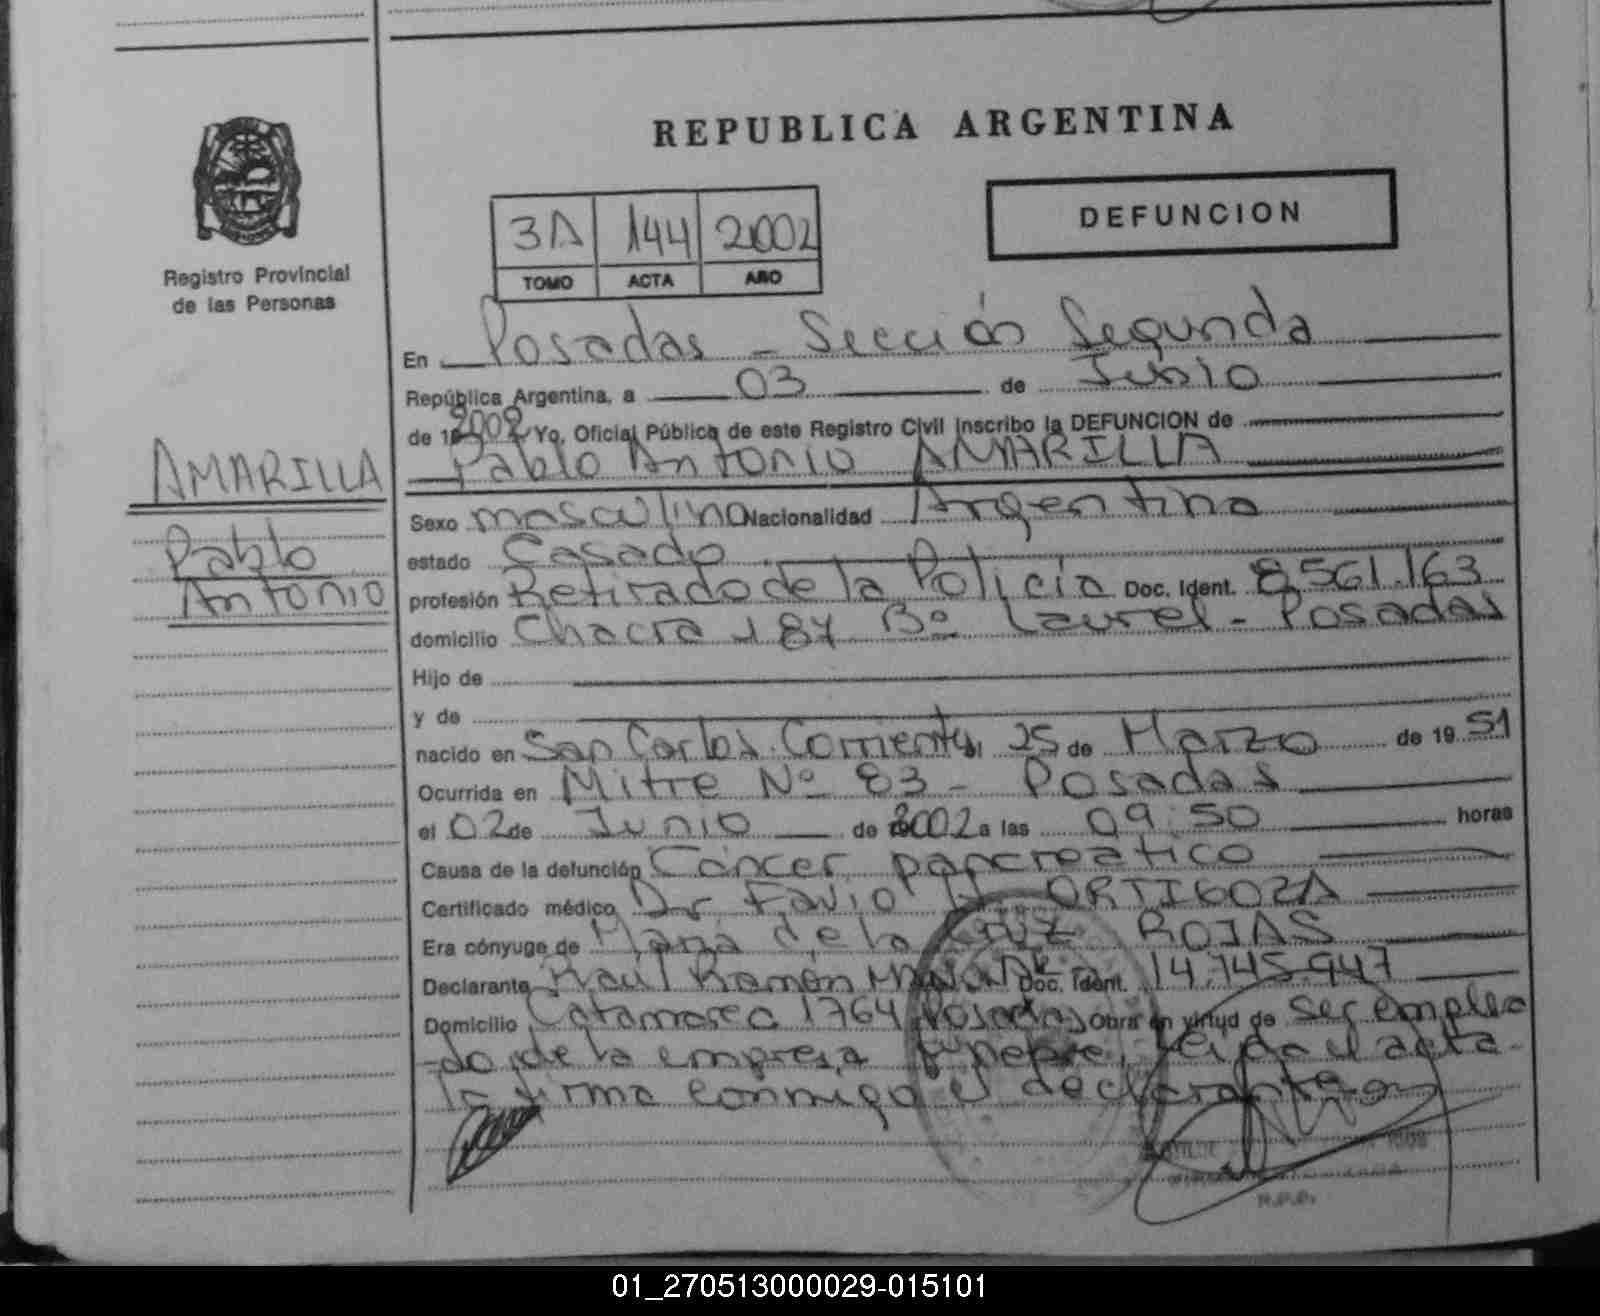 REPUBLICA ARGENTINA
DEFUNCION
Registro Provincial
de las Personas
3A 144 2002
TOMO ACTA AÑO
AMARILLA
Pablo
Antonio
En Posadas - Sección Segunda
República Argentina, a 03 de Junio
de 2002 Yo, Oficial Público de este Registro Civil inscribo la DEFUNCION de
Pablo Antonio AMARILLA
Sexo masculino Nacionalidad Argentina
estado Casado
profesión Retirado de la Policía Doc. Ident. 8.561.163
domicilio Chacra 187 Bº Laurel - Posadas
Hijo de
y de
nacido en San Carlos. Corrientes, 25 de Marzo de 1951
Ocurrida en Mitre Nº 83 - Posadas
el 02 de Junio de 2002 a las 09:50 horas
Causa de la defunción Cáncer pancreático
Certificado médico Dr Favio ORTIGOZA
Era cónyuge de María de la Cruz ROJAS
Declarante Raúl Ramón Doc. Ident. 14.745.947
Domicilio Catamarca 1764 Posadas Obra en virtud de ser emplea
do de la empresa fúnebre, leída el acta
la firma conmigo el declarante
R.P.P.
01_270513000029-015101